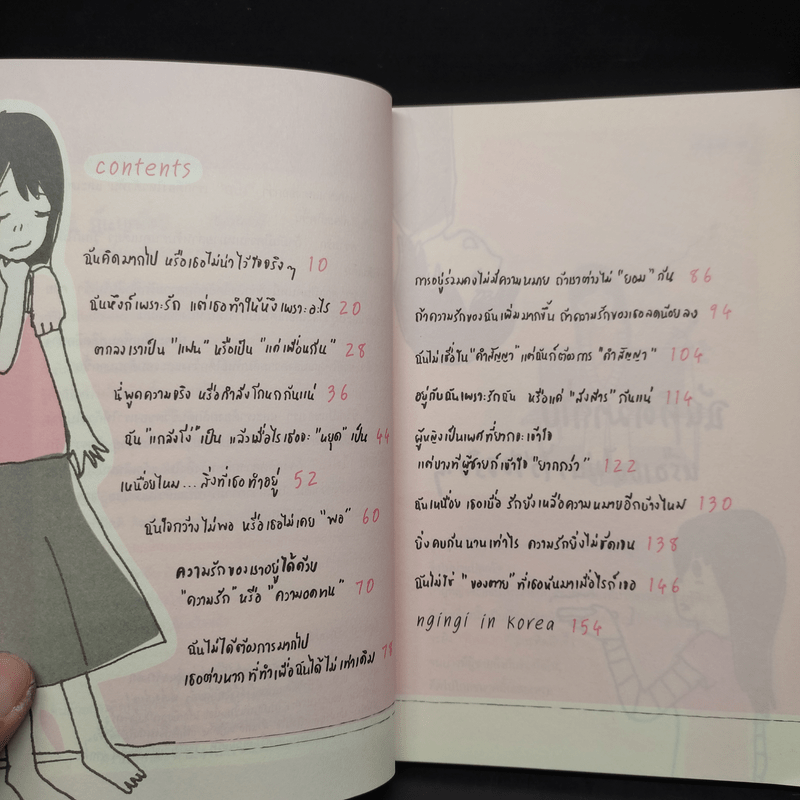 contents
ฉันคิดมากไป หรือเธอไม่น่าไว้ใจจริงๆ 10
ฉันหึงก็เพราะรัก แต่เธอทำให้หึงเพราะอะไร 20
ตกลงเราเป็น "แฟน" หรือเป็น "แค่เพื่อนกัน" 28
นี่พูดความจริง หรือกำลังโกหกกันแน่ 36
ฉัน "แกล้งโง่" เป็น แล้วเมื่อไรเธอจะ "หยุด" เป็น 44
เหนื่อยไหม... สิ่งที่เธอทำอยู่ 52
ฉันใจกว้างไม่พอ หรือเธอไม่เคย "พอ" 60
ความรักของเราอยู่ได้ด้วย
"ความรัก" หรือ "ความอดทน" 70
ฉันไม่ได้ต้องการมากไป
เธอต่างหากที่ทำเพื่อฉันได้ไม่เท่าเดิม 78
การอยู่ร่วมคงไม่มีความหมาย ถ้าเราต่างไม่ "ยอม" กัน 86
ถ้าความรักของฉันเพิ่มมากขึ้น ถ้าความรักของเธอลดน้อยลง 94
ฉันไม่เชื่อใน "คำสัญญา" แต่ฉันก็ต้องการ "คำสัญญา" 104
อยู่กับฉันเพราะรักฉัน หรือแค่ "สงสาร" กันแน่ 114
ผู้หญิงเป็นเพศที่ยากจะเข้าใจ
แต่บางทีผู้ชายก็เข้าใจ "ยากกว่า" 122
ฉันเหนื่อย เธอเบื่อ รักยังเหลือความหมายอีกบ้างไหม 130
ยิ่งคบกันนานเท่าไร ความรักยิ่งไม่ชัดเจน 138
ฉันไม่ใช่ "ของตาย" ที่เธอหันมาเมื่อไรก็เจอ 146
ngingi in Korea 154